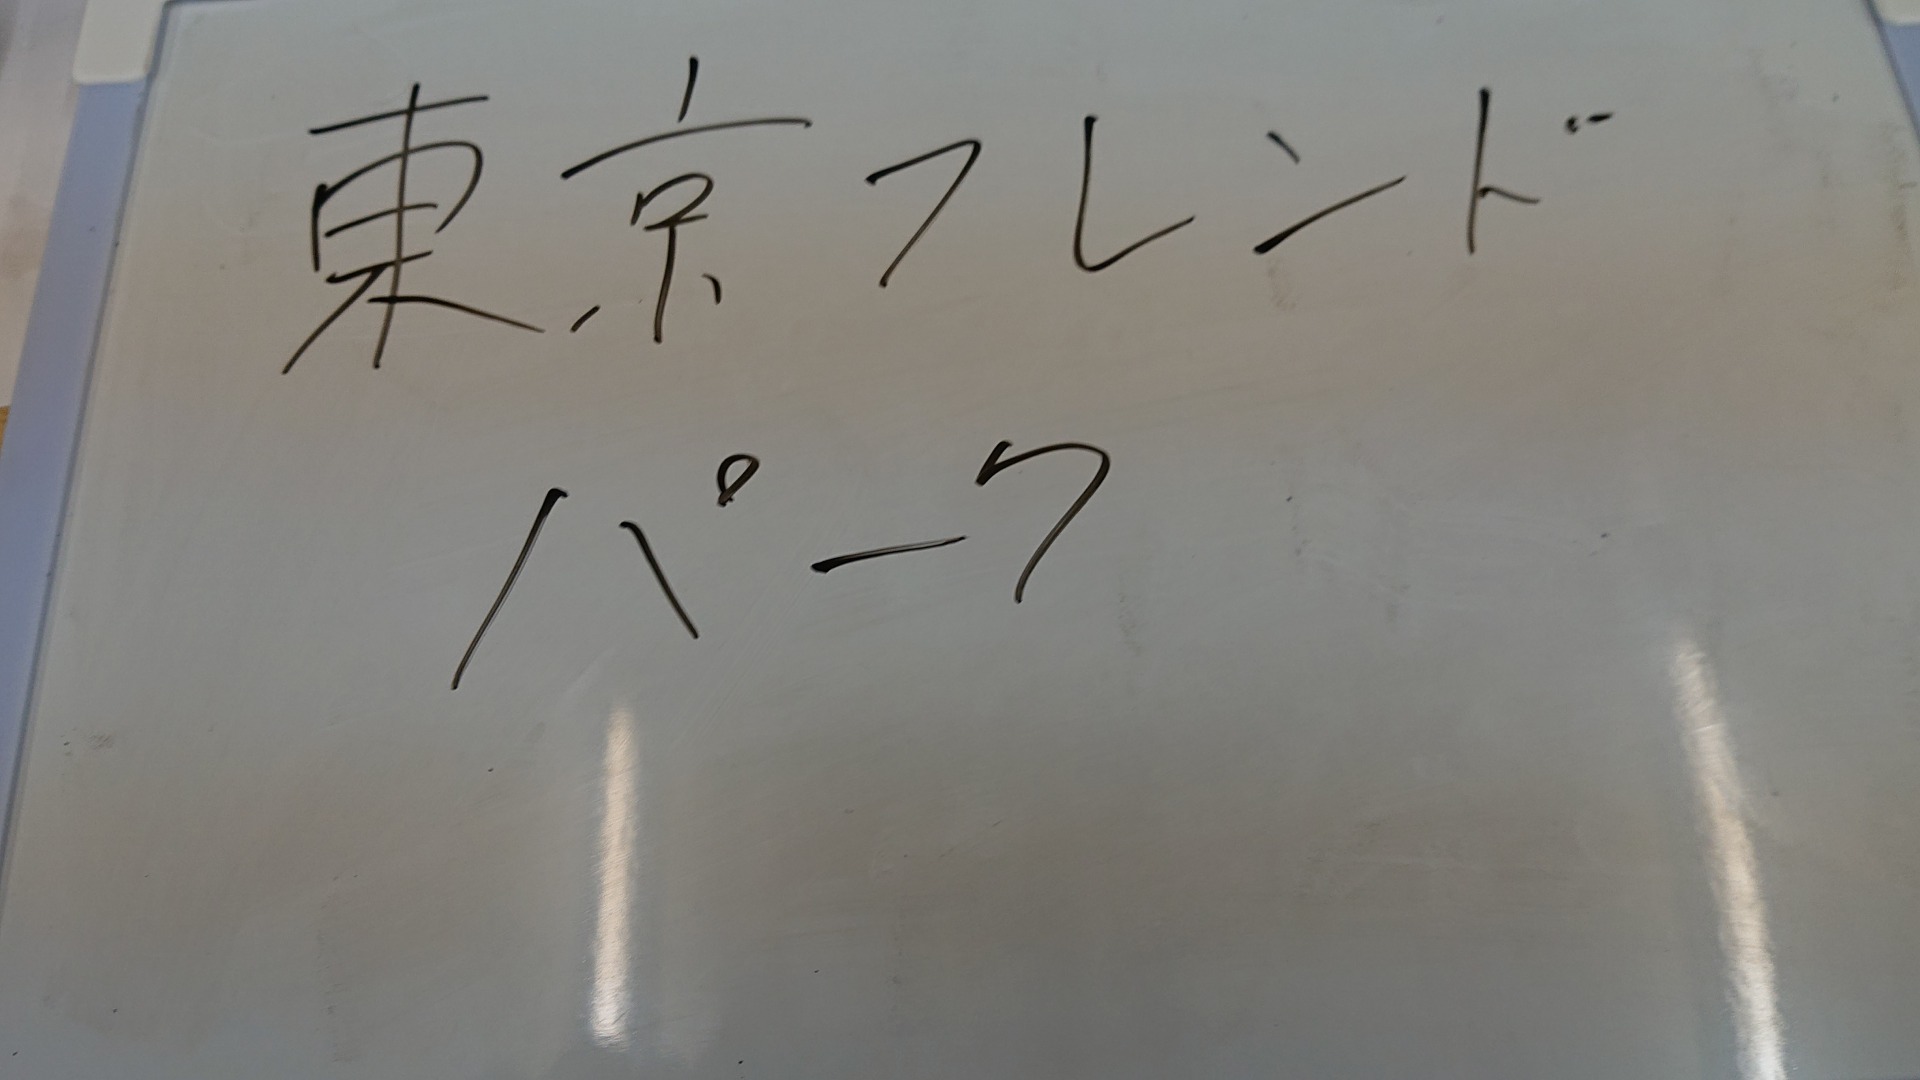 東京フレンド
パーク